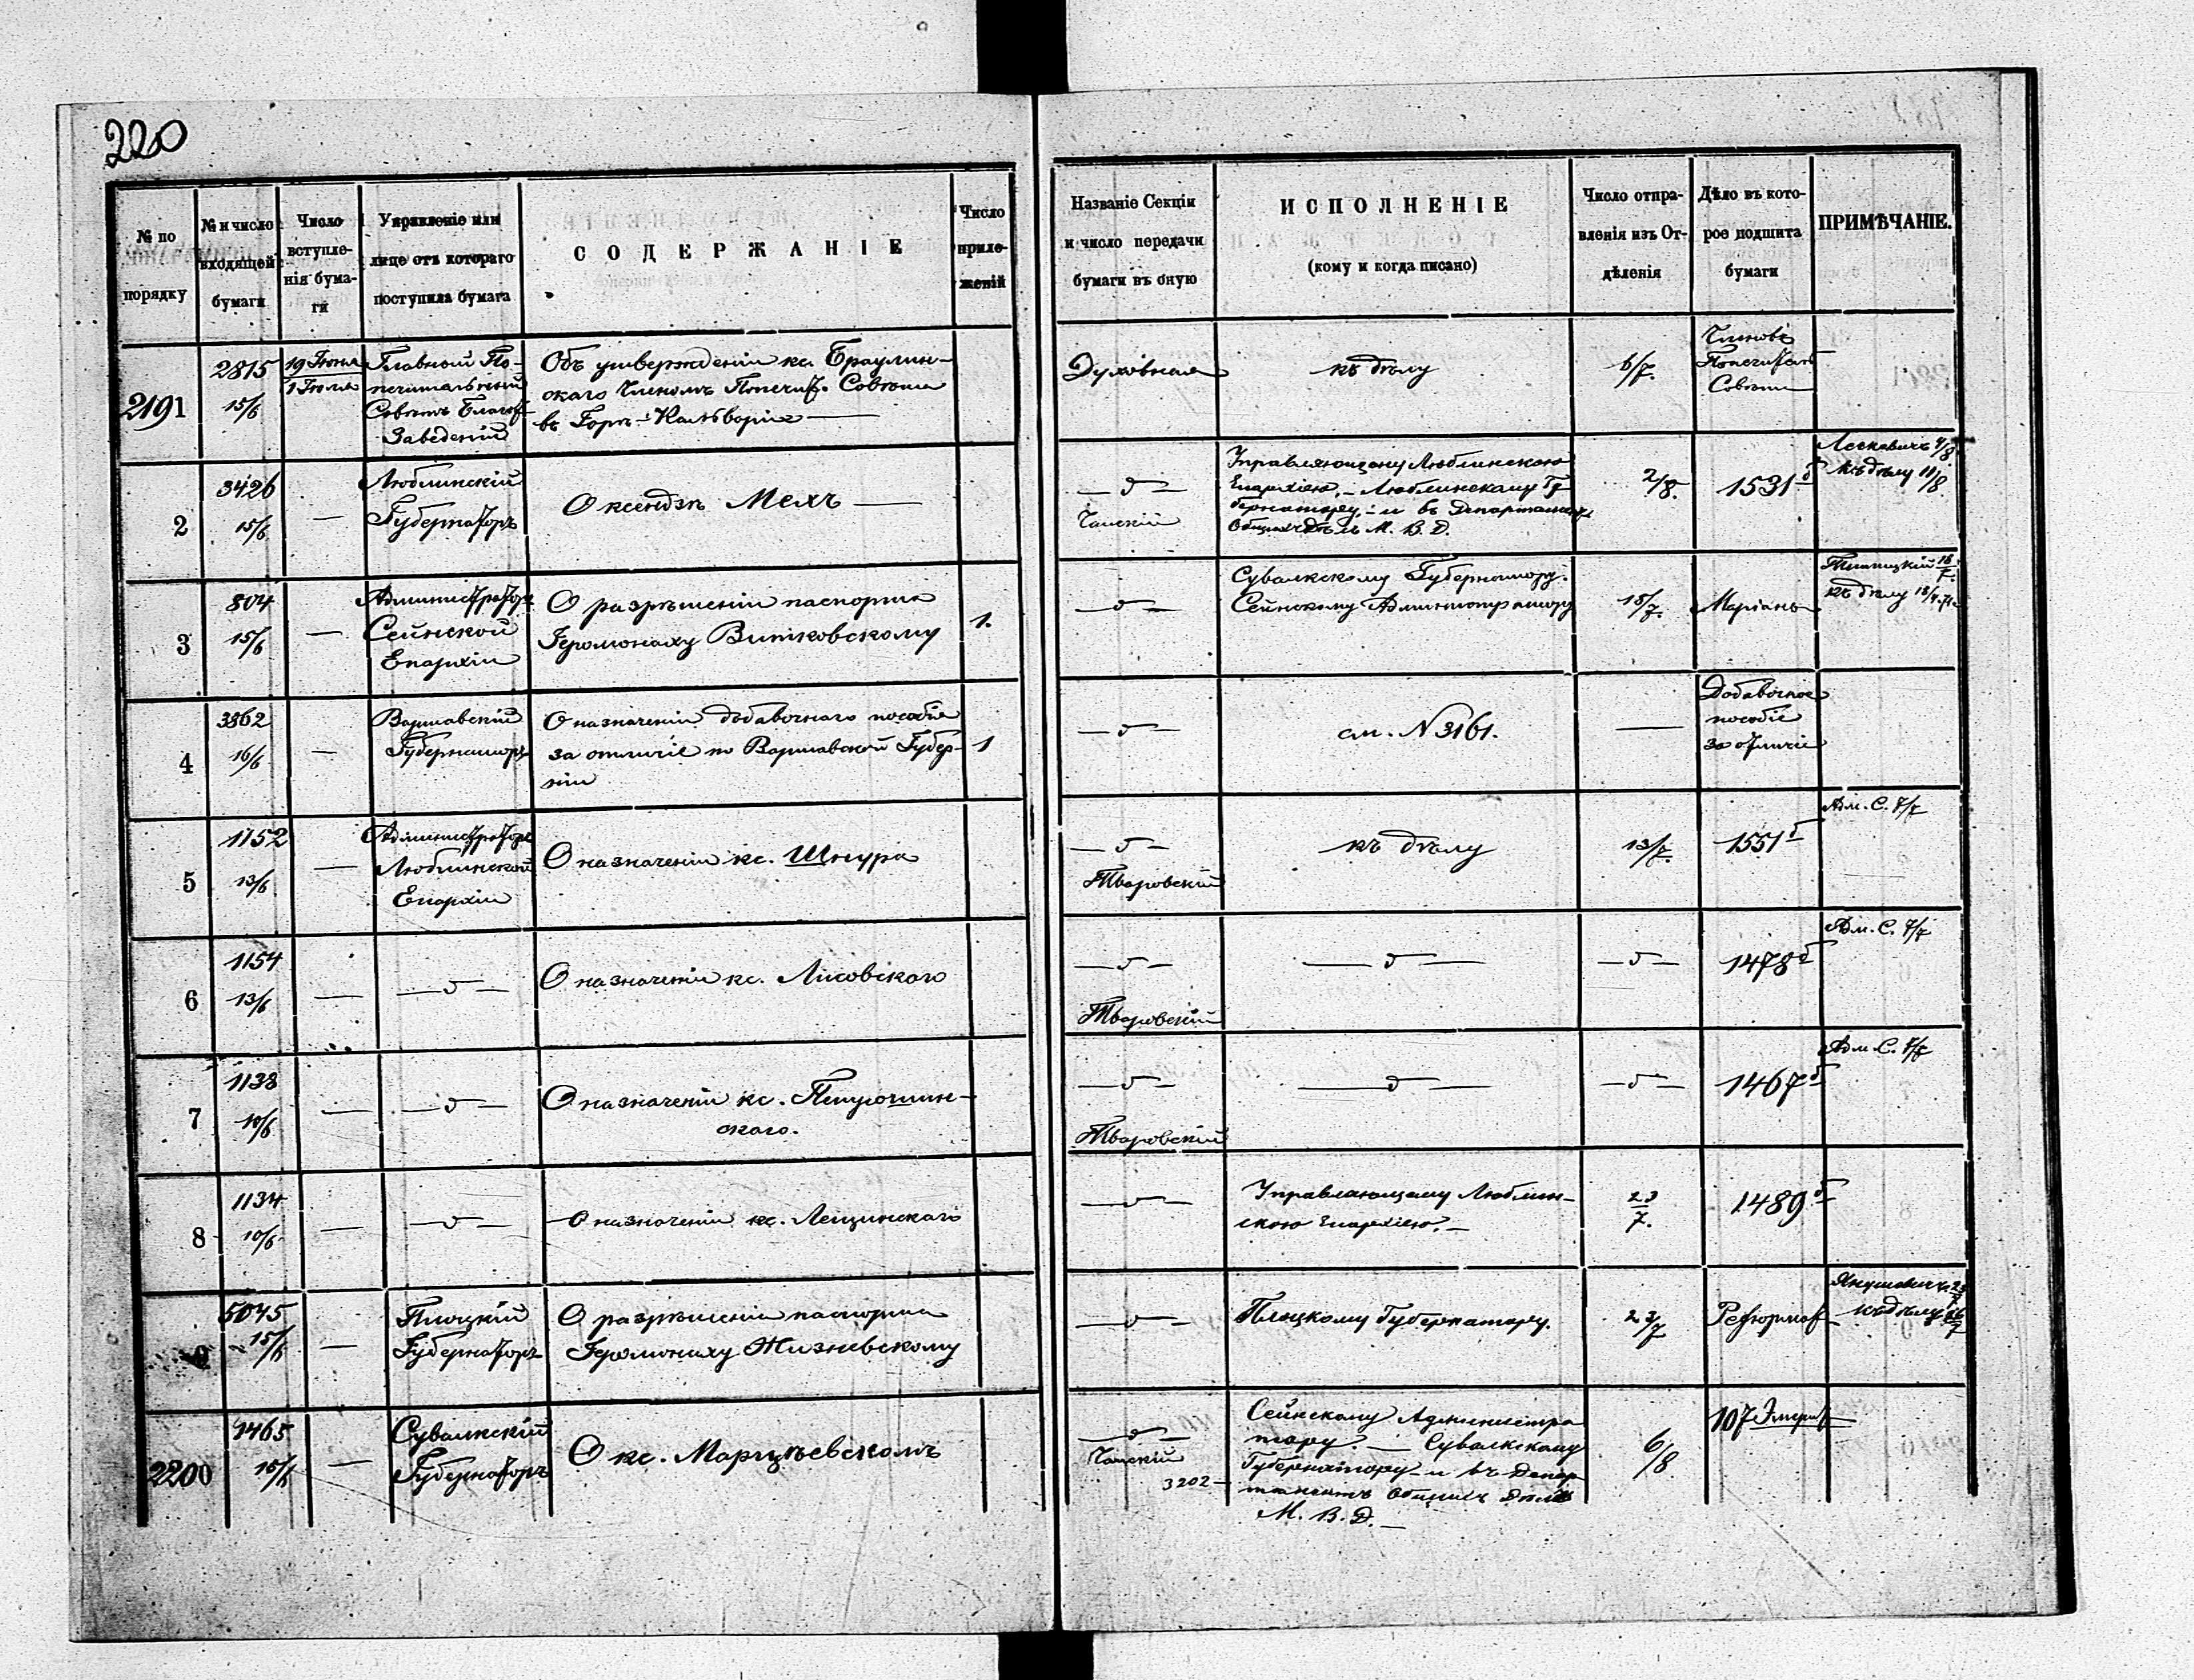 220
№ по порядку
№ и число входящей бумаги
Число вступленія бумаги
Управленіе или лице отъ котораго поступила бумага
СОДЕРЖАНІЕ
Число приложеній
Названіе Секціи и число передачи бумаги въ оную
ИСПОЛНЕНІЕ
(кому и когда писано)
Число отправленія изъ Отдѣленія
Дѣло въ которое подшита бумаги
ПРИМѢЧАНІЕ.
2191
2815
15/6
19 Іюня
1 Іюля
Главный По-
печительный
Совѣтъ Благот
Заведеній
Объ утвержденіи кс. Браулин-
скаго Членомъ Попечит. Совѣта
въ Горѣ-Кальваріи —
Духовная
къ дѣлу
6/7.
Члены
Попечит
Совѣта
2
3426
15/6
—
Люблинскій
Губернаторъ
О ксендзѣ Мехъ —
— д —
Чапскій
Управляющему Люблинскою
Епархіею, - Люблинскому Гу
бернатору, - и въ Департамен
Общихъ Дѣлъ М. В. Д.
2/8.
1531 б
къ дѣлу 11/8
3
804
15/6
—
Администраторъ
Сейнской
Епархіи
О разрѣшеніи паспорта
Іеромонаху Витковскому
1.
— д —
Сувалкскому Губернатору.
Сейнскому Администратору
15/7.
Маріанъ
къ дѣлу
4
3862
16/6
—
Варшавскій
Губернаторъ
О назначеніи добавочнаго пособія
за отличіе по Варшавской Губер-
ніи
1
— д —
см. N 3161.
—
Добавочное
пособіе
за отличіе
5
1152
13/6
—
Администраторъ
Люблинской
Епархіи
О назначеніи кс. Шнура
— д —
Тваровскій
къ дѣлу
13/7.
1551 б
Адм. С. 7/7
6
1154
13/6
—
— д —
О назначеніи кс. Лисовскаго
— д —
Тваровскій
— д —
— д —
1478 б
Адм. С. 7/7
7
1138
10/6
—
— д —
О назначеніи кс.
скаго.
— д —
Тваровскій
— д —
— д —
1467 б
Адм. С.
8
1134
10/6
—
— д —
О назначеніи кс. Лещинскаго
— д —
Управляющему Люблин-
скою Епархіею. —
23
7.
1489 б
9
5045
15/6
—
Плоцкій
Губернаторъ
О разрѣшеніи паспорта
Іеромонаху Жизневскому
— д —
Плоцкому Губернатору.
23/7
Реформат
къ дѣлу
2200
1465
15/6
—
Сувалкскій
Губернаторъ
О кс. Марцѣевскомъ
— д —
Чапскій
3202 —
Сейнскому Администра
тору. — Сувалкскому
Губернатору и въ Депар
таментъ Общихъ Дѣлъ
М. В. Д. —
6/8
107 Эмерит